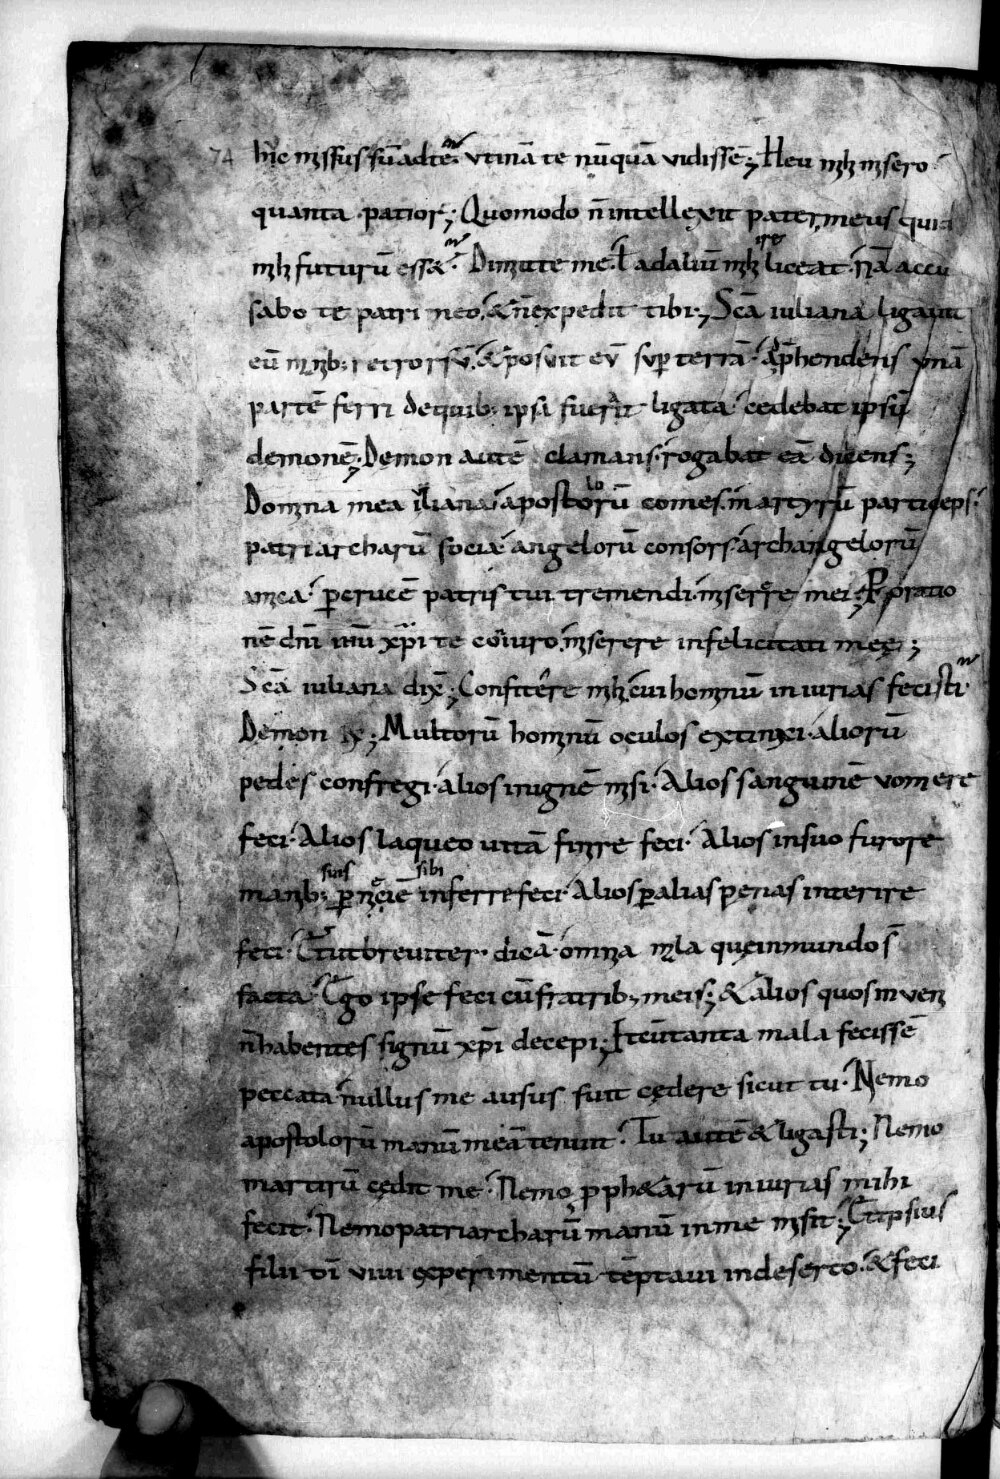 74 hic missus sū ad te· vtinā te nūquā vidissē; Heu mihi misero·
quanta patior; Quomodo n̄ intellexit pater meus quid
mihi futurū ess&· Dimitte me· ł ad aliū mihi ire liceat· Nā accu
sabo te patri meo, & n̄ expedit tibi; Scā iuliana ligauit
eū manib: retrorsū· & posuit eū sup̱ terrā· Ap̄hendens vnā
partē ferri de quib: ipsa fuerat ligata· cedebat ipsū
demonē; Demon autē clamans· rogabat eā dicens;
Domna mea iuliana· apostolorū comes· martyrū particeps·
patriarcharū socia· angelorū consors· archangelorū
amica· p̱ crucē patris tui tremendi· miserere mei; P̱ oratio
nē dn̄i ihū xp̄i te coniuro· miserere infelicitati meę;
Scā iuliana dix̄; Confitere mihi· cui hominū iniurias fecisti·
Demon ix̄; Multorū hominū oculos extinxi· aliorū
pedes confregi· alios in ignē misi· Alios sanguinē vomere
feci· Alios laqueo vitā finire feci· Alios in suo furore
manib: suis p̱niciē sibi inferre feci· Alios p̱ alias penas interire
feci· Et ut breuiter· dicā· omnia mala quę in mundo s̄
facta· Ego ipse feci cū fratrib; meis; & alios quos inueni
n̄ habentes signū xp̄i decepi; Itē tanta mala fecissē
peccata· nullus me ausus fuit cędere sicut tu· Nemo
apostolorū manū meā tenuit· Tu autē & ligasti; Nemo
martirū cędit me· Nemo pph&arū iniurias mihi
fecit· Nemo patriarcharū manū in me misit; Et ipsius
filii dī viui experimentū tēptaui in deserto· & feci